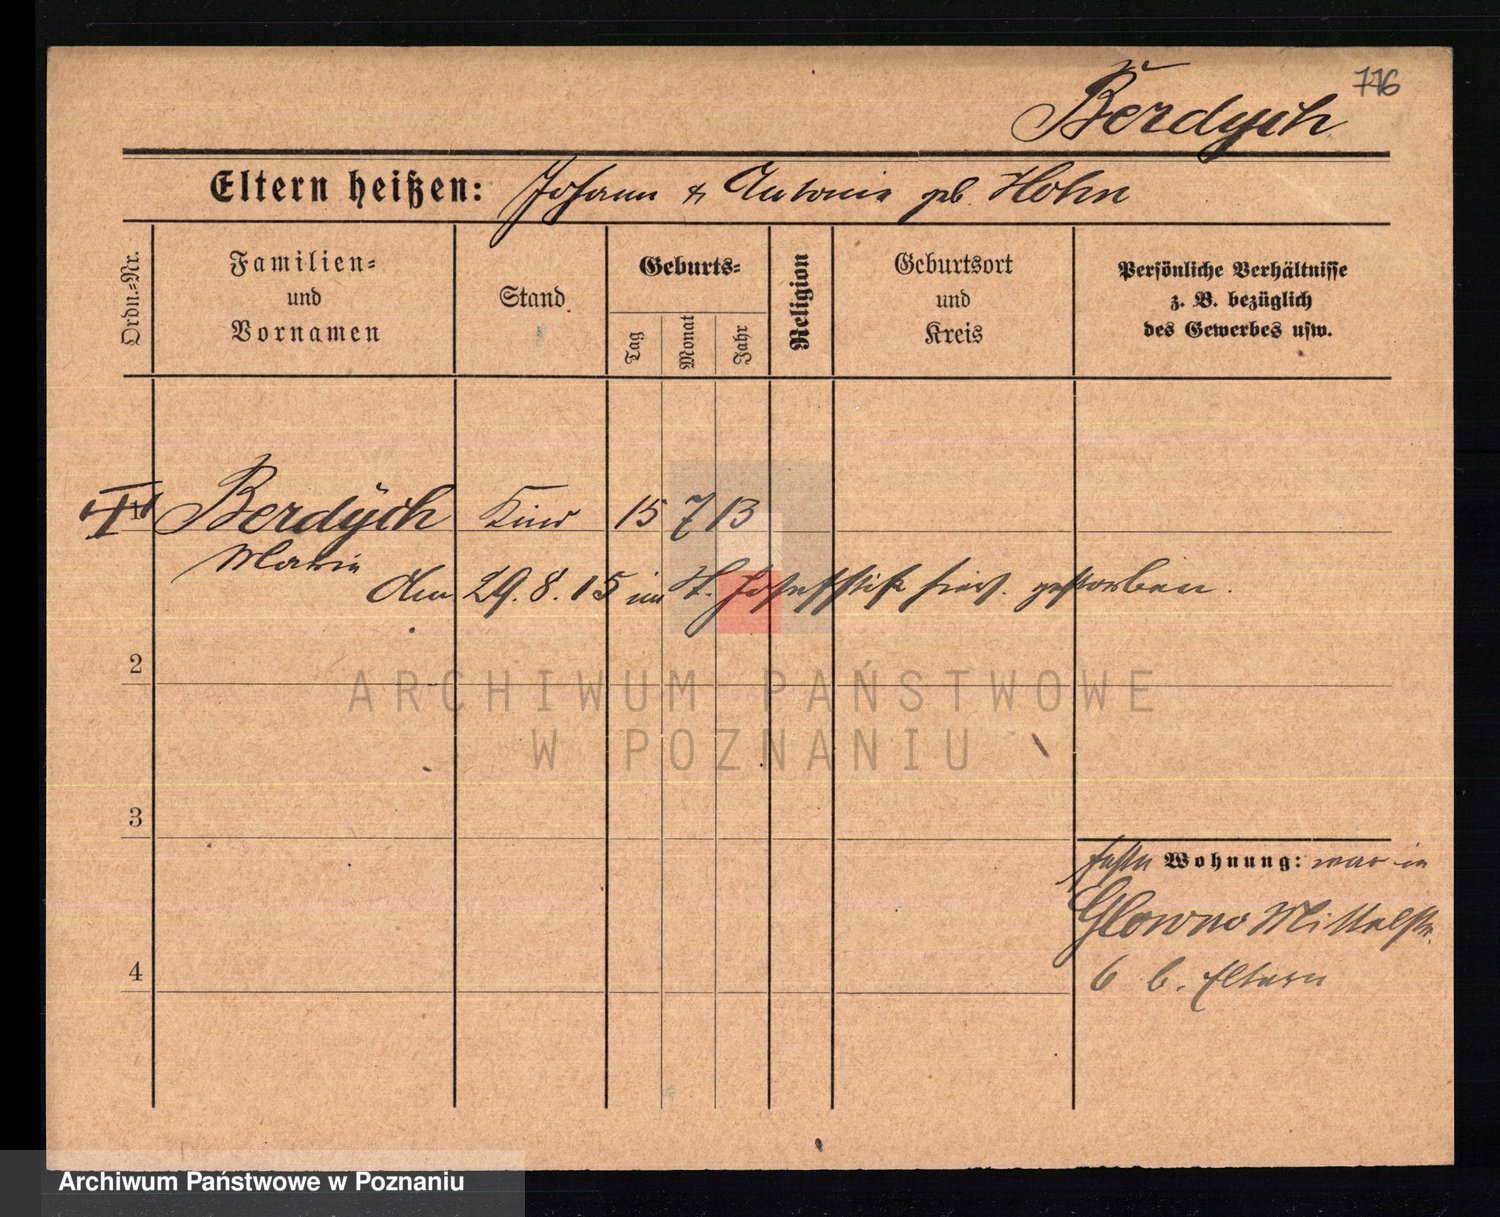 776
Berdych
Eltern heißen: Johann & Antonie geb. Hohn
Ordn.-Nr.
Familien-
und
Vornamen
Stand
Geburts-
Tag
Monat
Jahr
Religion
Geburtsort
und
Kreis
Persönliche Verhältnisse
z. B. bezüglich
des Gewerbes usw.
1 Berdych Kind 15 7 13
Marie
Am 29. 8. 15 im St. Josefstift hies. gestorben.
2
ARCHIWUM PAŃSTWOWE
W POZNANIU
3
feste Wohnung: war in
Glowno Mittelstr.
6 b. Eltern
4
Archiwum Państwowe w Poznaniu